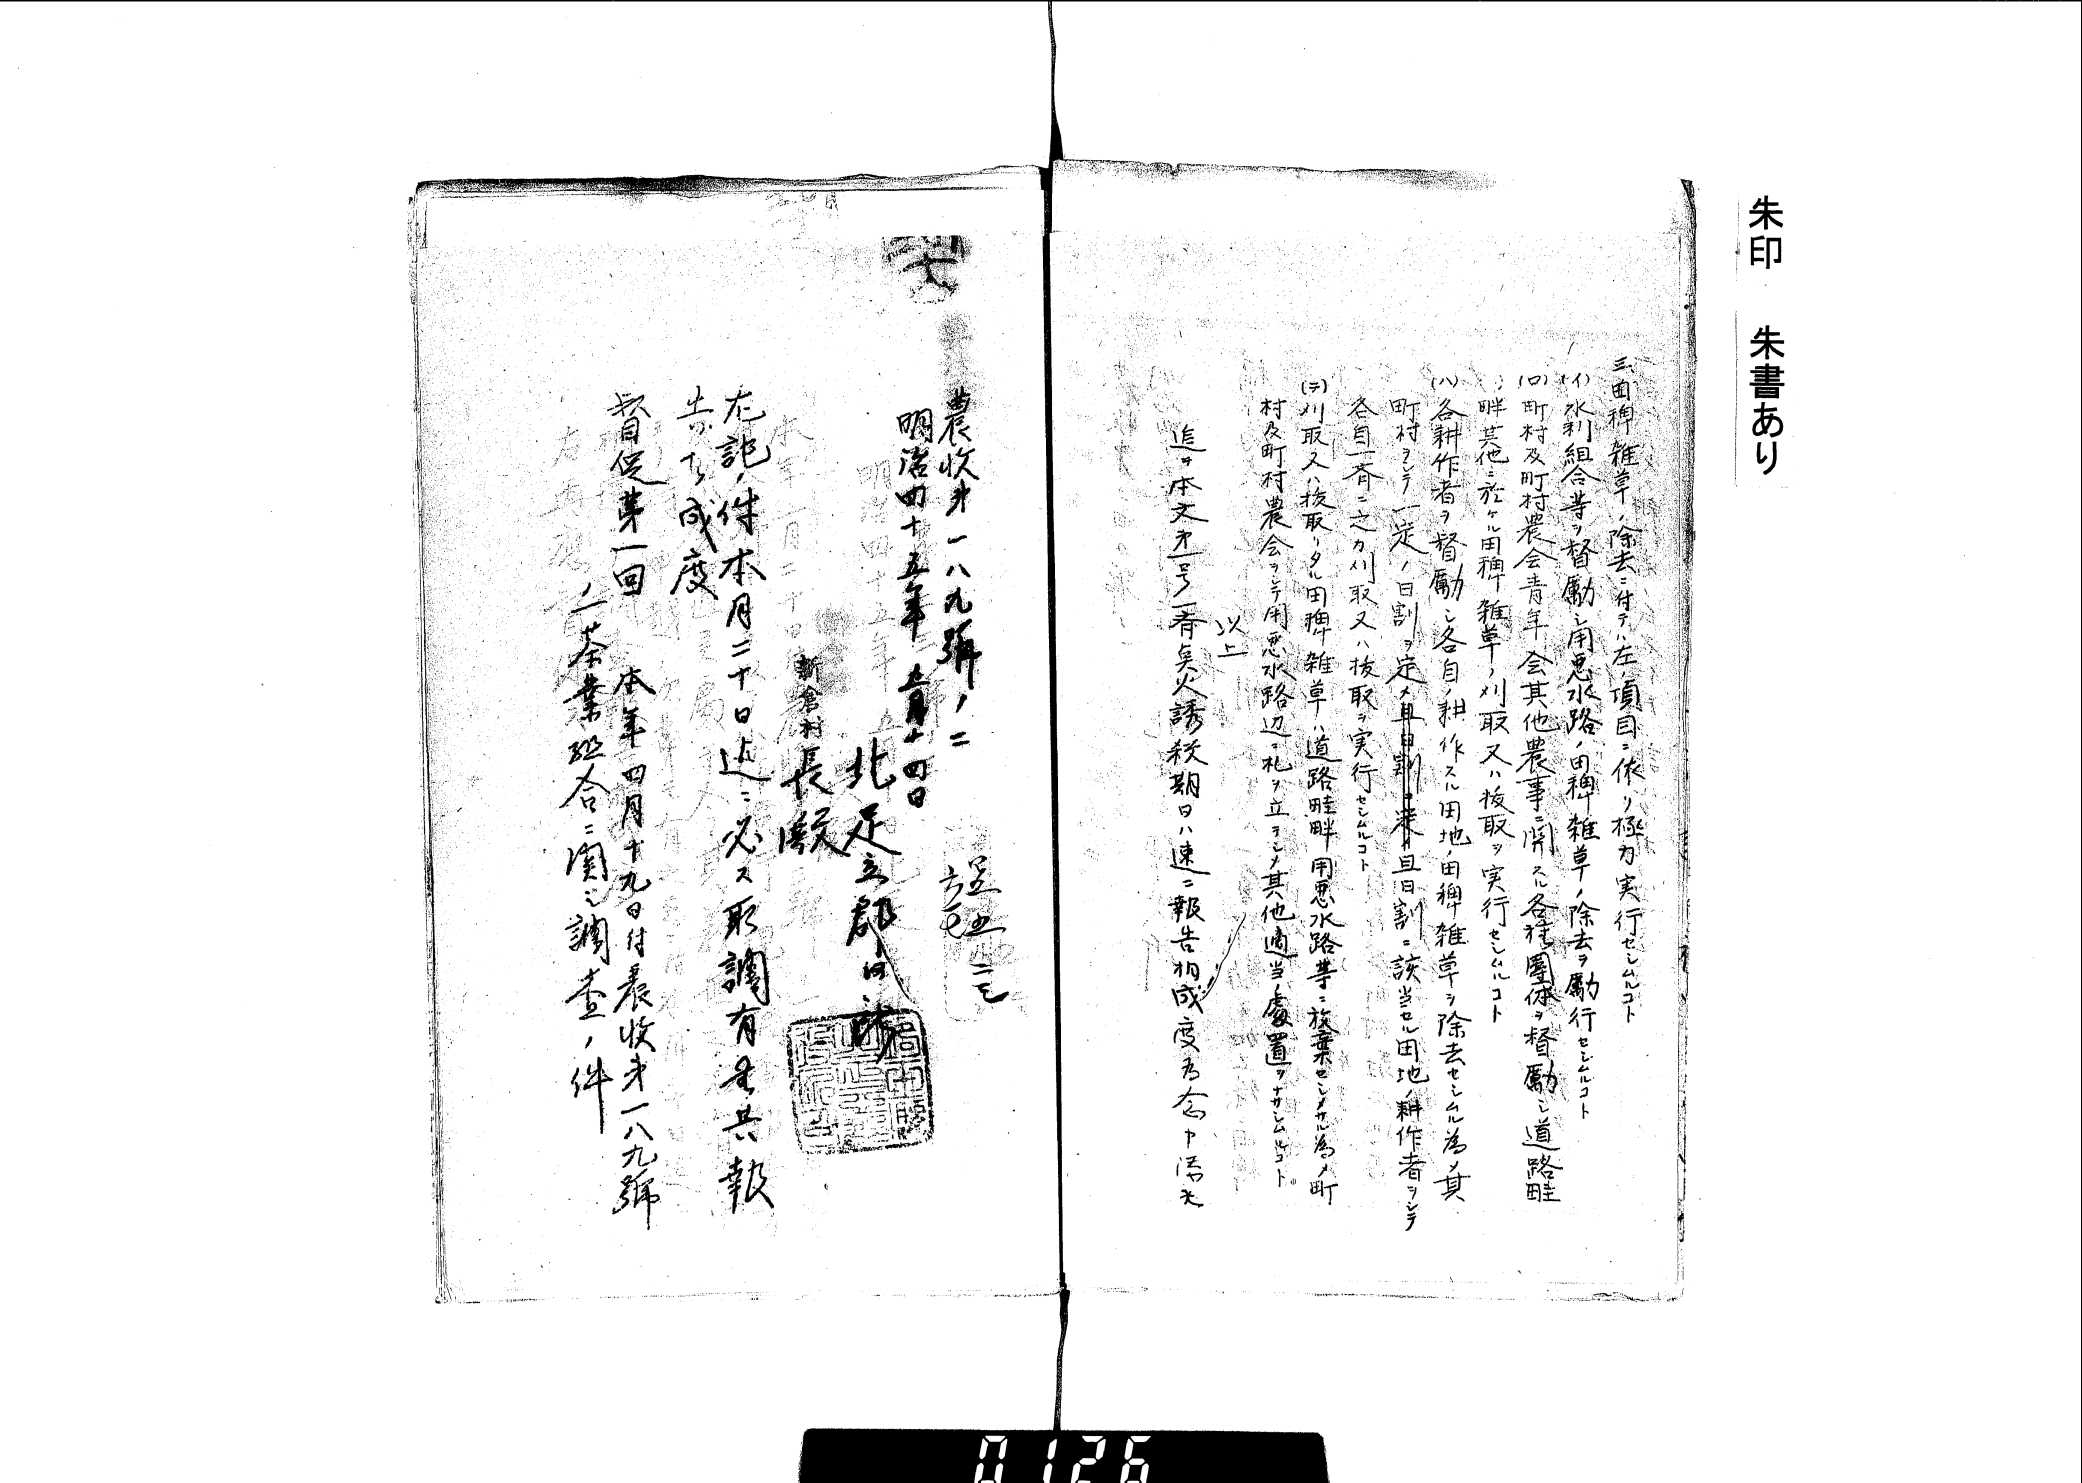 朱印　朱書あり
三、田稗雑草ノ除去ニ付テハ左ノ項目ニ依リ極力実行セシムルコト
(イ)水利組合等ヲ督励シ用悪水路ノ田稗雑草ノ除去ヲ励行セシムルコト
(ロ)町村及町村農会青年会其他農事ニ関スル各種團体ヲ督励シ道路畦
畔其他ニ於ケル田稗雑草ノ刈取又ハ抜取ヲ実行セシムルコト
(ハ)各耕作者ヲ督励シ各自ノ耕作スル田地ノ田稗雑草ヲ除去セシムル為メ其
町村ヲシテ一定ノ日割ヲ定メ且日割ニ該当セル田地ノ耕作者ヲシテ
各自一斉ニ之カ刈取又ハ抜取ヲ実行セシムルコト
(ニ)刈取又ハ抜取リタル田稗雑草ハ道路畦畔用悪水路等ニ放棄セシメサル為メ町
村及町村農会ヲシテ用悪水路辺ニ札ヲ立ヲシメ其他適当ノ處置ヲナサシムルコト。
以上
追テ本文第一号一斉点火誘殺期日ハ速ニ報告相成度為念申添候
七
農收第一八九號ノ二
明治四十五年五月十四日
北足立郡役所
新倉村長殿
左記ノ件本月二十日迄ニ必ス取調有無共報
告相成度
督促第一回　本年四月十九日付農收第一八九號
一茶業組合ニ関シ調査ノ件
0126